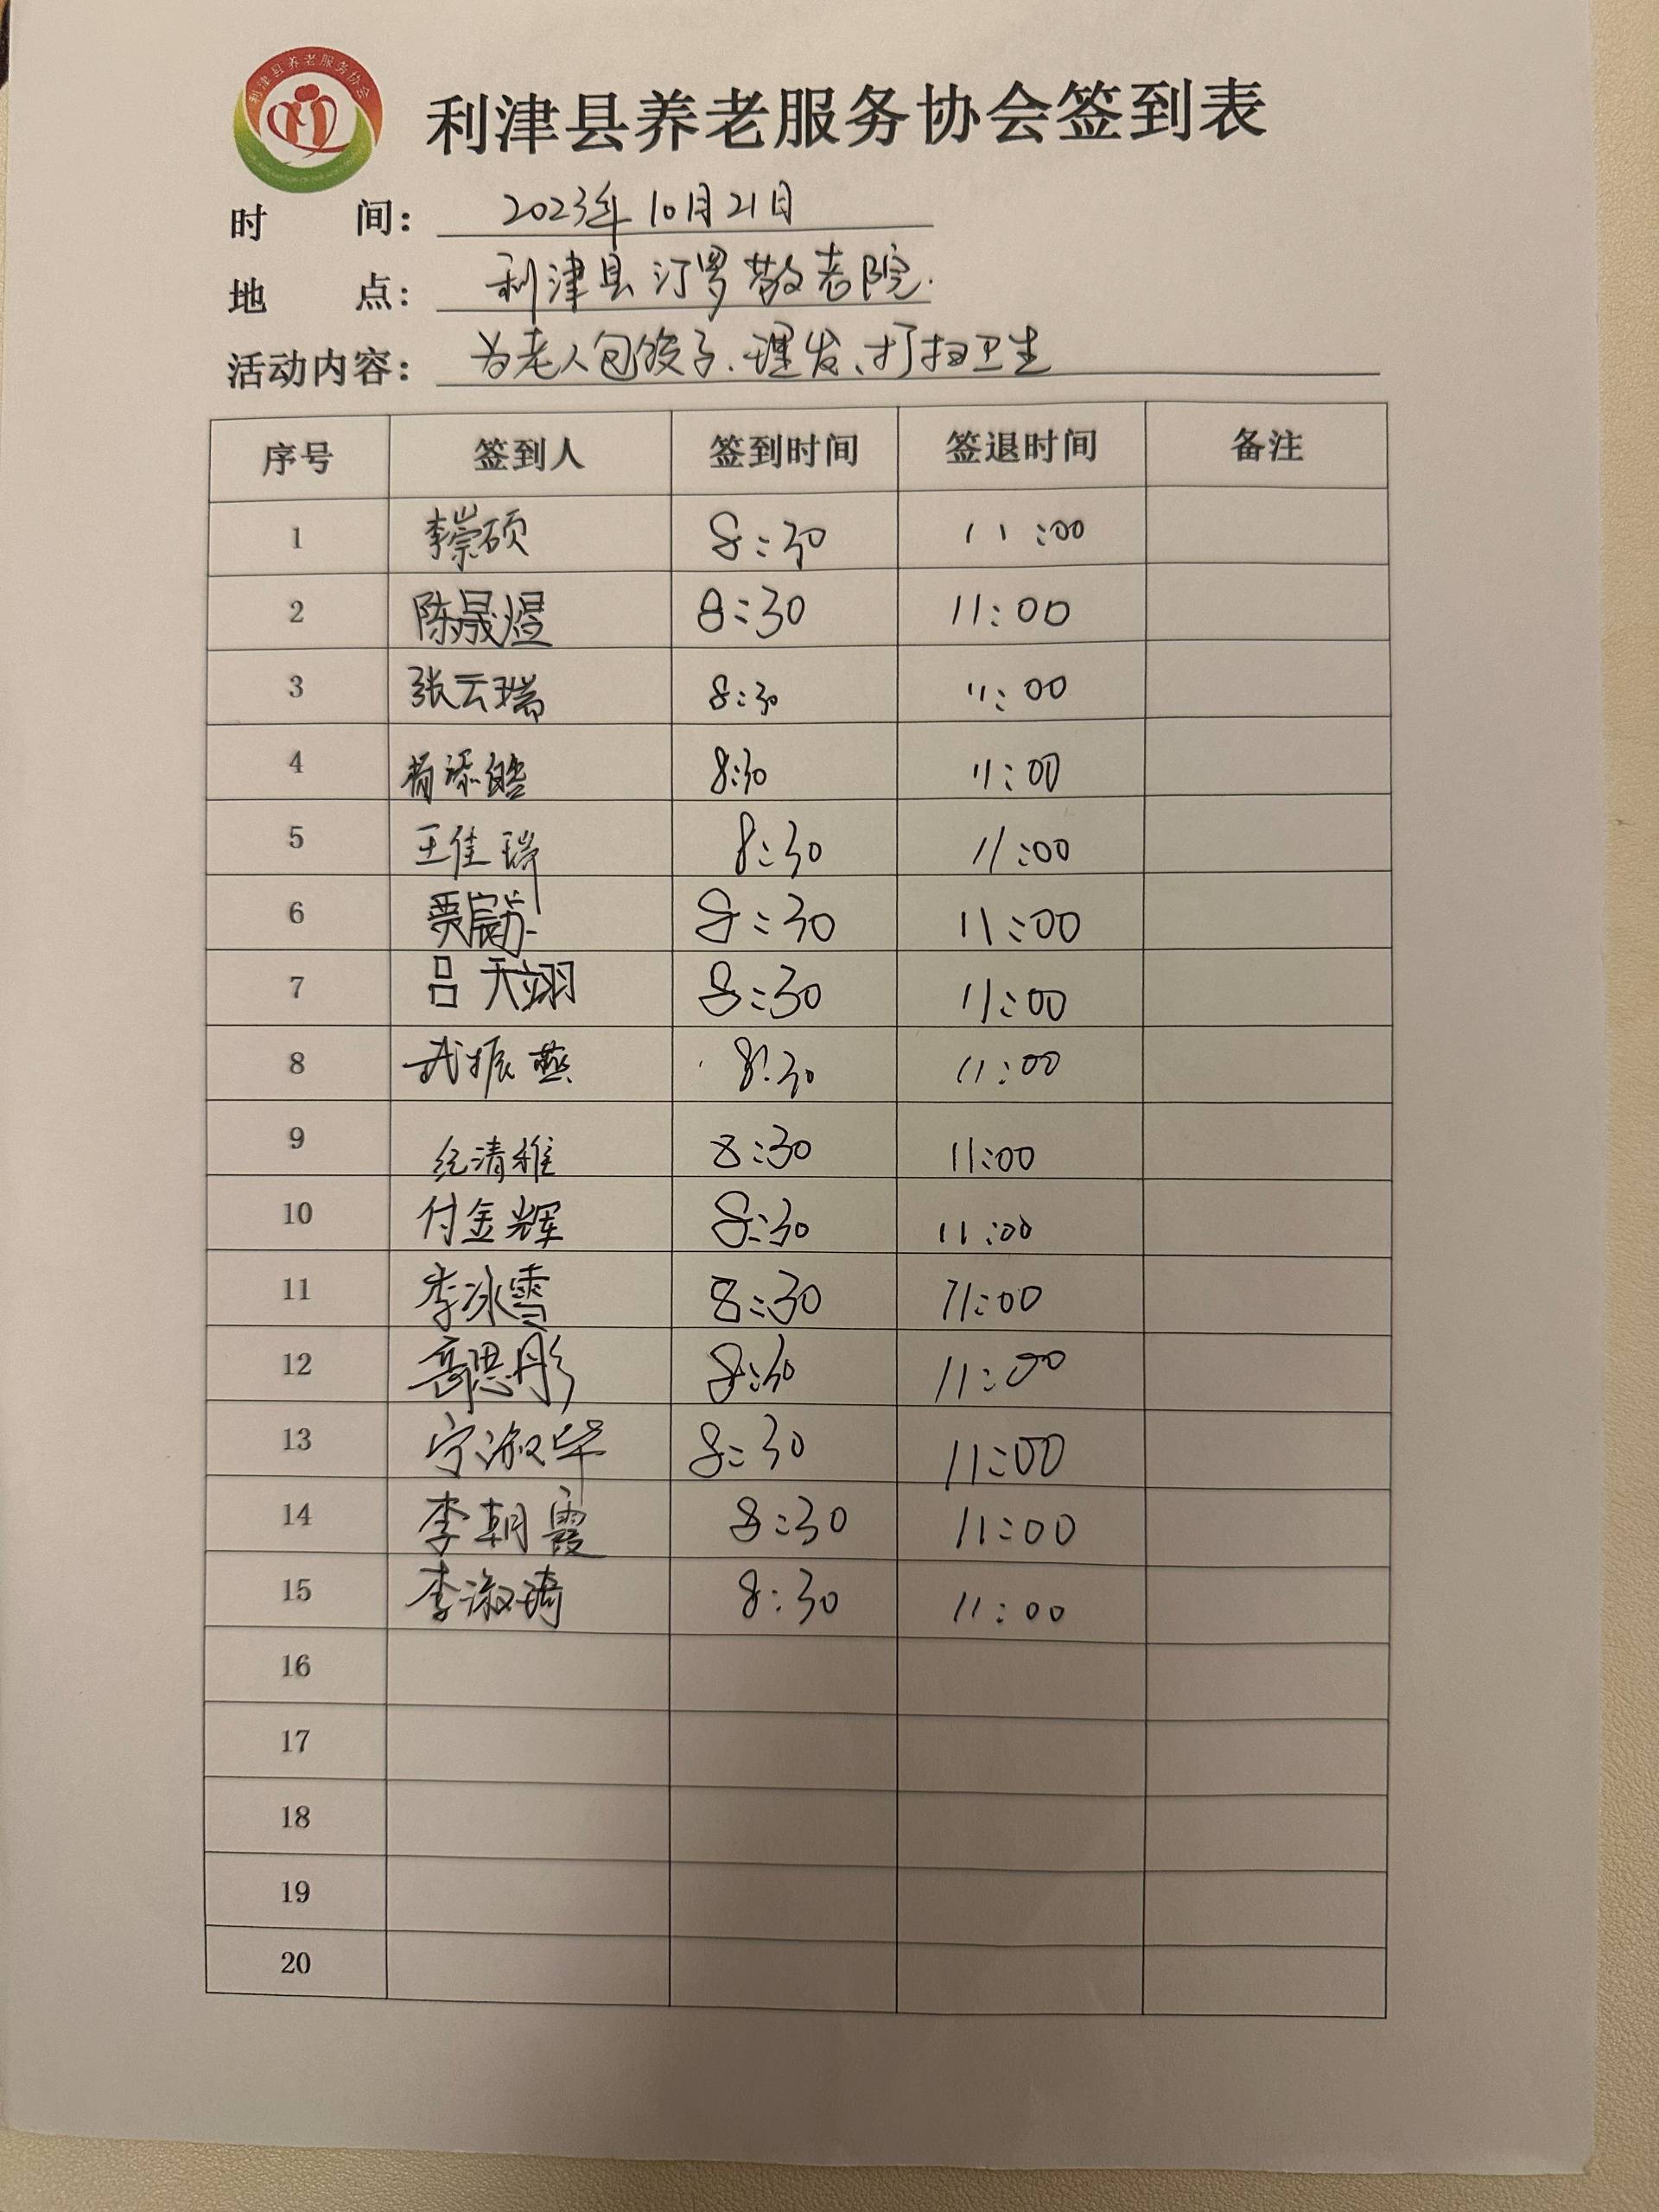 利津县养老服务协会
利津县养老服务协会签到表
时 间: 2023年10月21日
地 点: 利津县汀罗敬老院.
活动内容: 为老人包饺子、理发、打扫卫生
序号 签到人 签到时间 签退时间 备注
1 李崇硕 8:30 11:00
2 陈晟煜 8:30 11:00
3 张云瑞 8:30 11:00
4 8:30 11:00
5 王佳瑞 8:30 11:00
6 8:30 11:00
7 吕天翊 8:30 11:00
8 武振燕 8:30 11:00
9 纪清雅 8:30 11:00
10 付金辉 8:30 11:00
11 李冰雪 8:30 11:00
12 高思彤 8:30 11:00
13 宁淑华 8:30 11:00
14 李朝霞 8:30 11:00
15 李淑琦 8:30 11:00
16
17
18
19
20